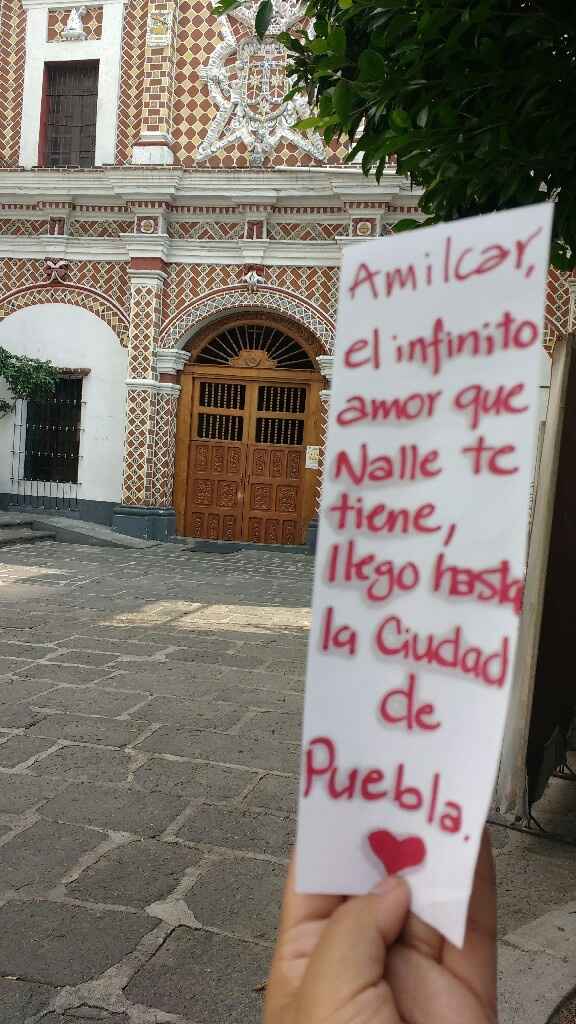 Amilcar,
el infinito
amor que
Nalle te
tiene,
llego hasta
la Ciudad
de
Puebla.